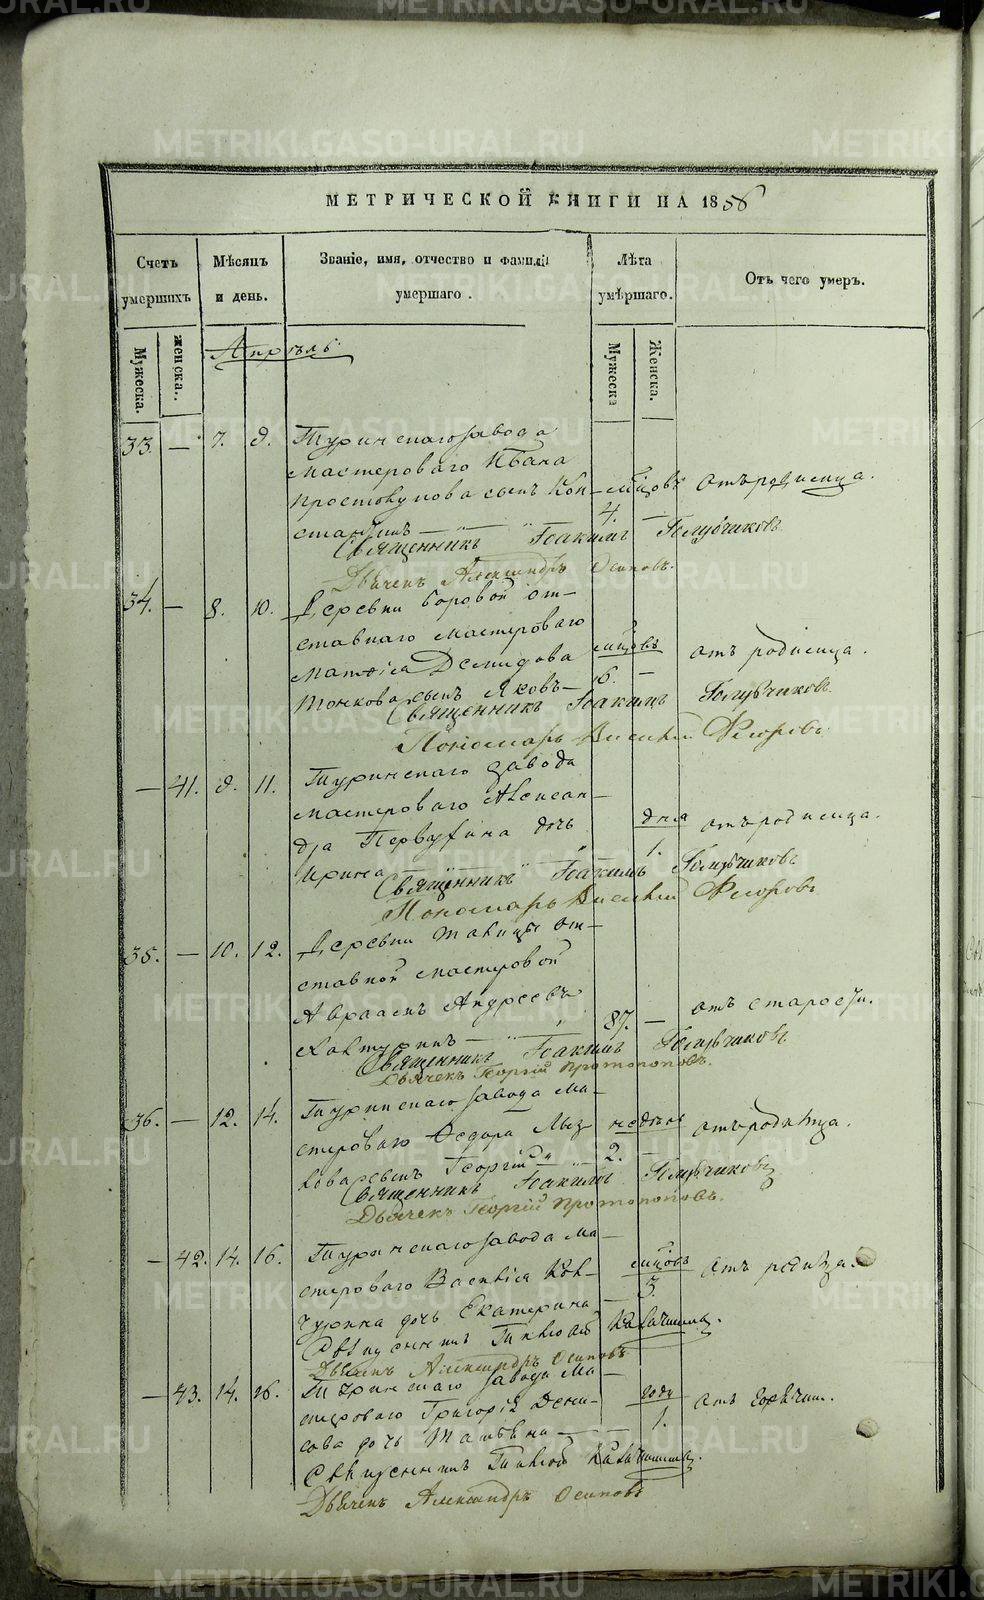 МЕТРИЧЕСКОЙ КНИГИ НА 1856
Счетъ умершихъ
Мѣсяцъ и день.
Званіе, имя, отчество и фамилія умершаго.
Лѣта умершаго.
Отъ чего умеръ.
Мужеска.
женска.
Мужеска
Женска.
Апрѣль
33. — 7. 9. Туринскаго завода
мастероваго Ивана
Простокупова сынъ Кон- мѣсяцовъ отъ родимца.
стантинъ — 4. —
Священникъ Іоакимъ Голубчиковъ
Дьячекъ Александръ Осиповъ.
34. — 8. 10. Деревни Боровой от-
ставнаго мастероваго
Матвѣя Демидова мѣсяцовъ отъ родимца.
Тонкова сынъ Яковъ — 6. —
Священникъ Іоакимъ Голубчиковъ
Пономарь Василій Флоровъ
— 41. 9. 11. Туринскаго завода
мастероваго Алексан-
дра Первухина дочь дня отъ родимца.
Ирина 1.
Священникъ Іоакимъ Голубчиковъ
Пономарь Василій Флоровъ
35. — 10. 12. Деревни от-
ставной мастеровой
Авраамъ Андреевъ 87. — отъ старости.
Священникъ Іоакимъ Голубчиковъ
Дьячекъ Георгій Протопоповъ.
36. — 12. 14. Туринскаго завода ма-
стероваго Федора недѣли отъ родимца.
сынъ Георгій 2. —
Священникъ Іоакимъ Голубчиковъ
Дьячекъ Георгій Протопоповъ.
— 42. 14. 16. Туринскаго завода ма-
стероваго Василія мѣсяцовъ отъ родимца.
дочь Екатерина — 3.
Священникъ
Дьячекъ Александръ Осиповъ
— 43. 14. 16. Туринскаго завода ма-
стероваго Григорія Дени- году отъ горячки.
сова дочь — 1.
Священникъ
Дьячекъ Александръ Осиповъ
METRIKI.GASO-URAL.RU